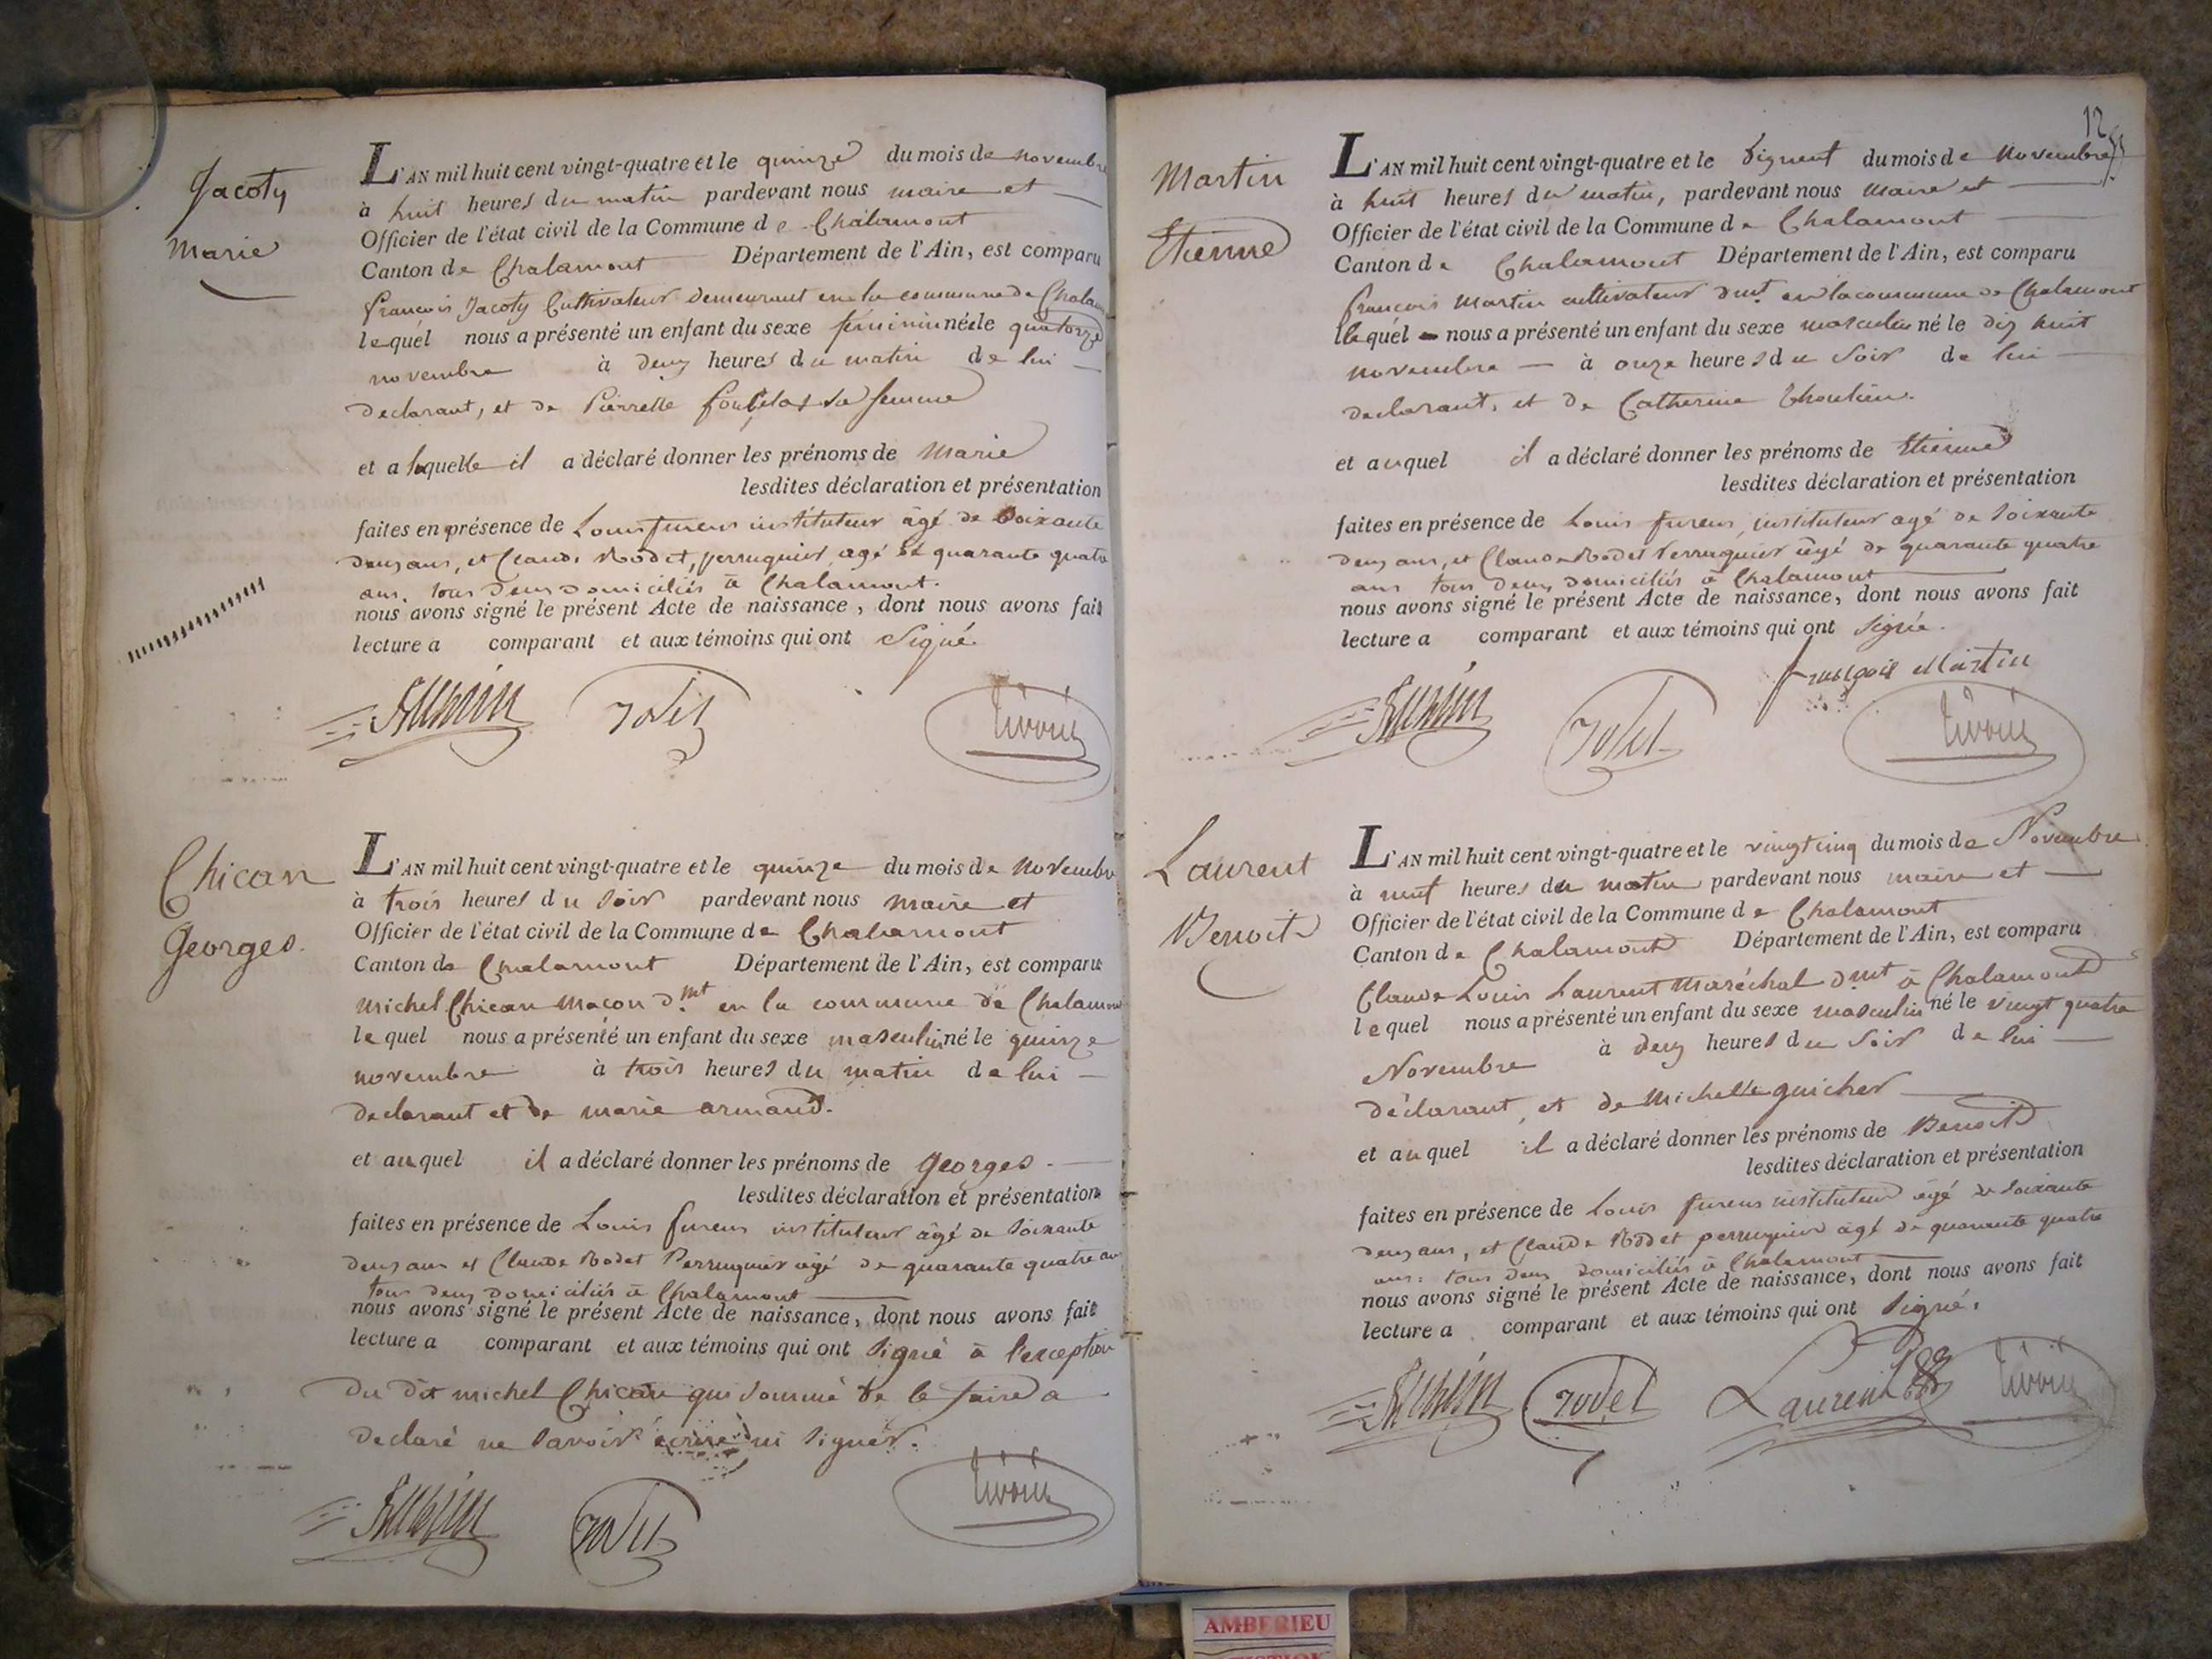 Jacoty
Marie
L'AN mil huit cent vingt-quatre et le quinze du mois de novembre
à huit heures du matin pardevant nous maire et
Officier de l'état civil de la Commune de Chalamont
Canton de Chalamont Département de l'Ain, est comparu
françois Jacoty Cultivateur demeurant en la commune de
lequel nous a présenté un enfant du sexe féminin née le quatorze
novembre à deux heures du matin de lui
declarant, et de Pierrette sa femme
et a laquelle il a déclaré donner les prénoms de Marie
lesdites déclaration et présentation
faites en présence de Louis furens instituteur âgé de soixante
deux ans, et Claude Rodet, perruquier agé de quarante quatre
ans. tous deux domiciliés à Chalamont.
nous avons signé le présent Acte de naissance, dont nous avons fait
lecture a comparant et aux témoins qui ont Signé
rodet
Chican
Georges.
L'AN mil huit cent vingt-quatre et le quinze du mois de Novembre
à trois heures du soir pardevant nous maire et
Officier de l'état civil de la Commune de Chalamont
Canton de Chalamont Département de l'Ain, est comparu
Michel Chican Maçon dmt en la commune de Chalamont
lequel nous a présenté un enfant du sexe masculin né le quinze
novembre à trois heures du matin de lui
declarant et de marie armand.
et auquel il a déclaré donner les prénoms de Georges.
lesdites déclaration et présentation
faites en présence de Louis furens instituteur âgé de soixante
deux ans et Claude Rodet Perruquier agé de quarante quatre an
tous deux domiciliés à Chalamont
nous avons signé le présent Acte de naissance, dont nous avons fait
lecture a comparant et aux témoins qui ont signé à l'exception
du dit michel Chican qui sommé de le faire a
declaré ne savoir écrire ni signer.
rodet
12
Martin
Etienne
L'AN mil huit cent vingt-quatre et le du mois de Novembre
à huit heures du matin, pardevant nous Maire et
Officier de l'état civil de la Commune de Chalamont
Canton de Chalamont Département de l'Ain, est comparu
françois Martin cultivateur dmt en la commune de Chalamont
lequel nous a présenté un enfant du sexe masculin né le dix huit
novembre à onze heures du soir de lui
declarant, et de Catherine
et auquel il a déclaré donner les prénoms de Etienne
lesdites déclaration et présentation
faites en présence de Louis furens, instituteur agé de soixante
deux ans, et Claude Rodet Perruquier âgé de quarante quatre
ans tous deux domiciliés à Chalamont
nous avons signé le présent Acte de naissance, dont nous avons fait
lecture a comparant et aux témoins qui ont signé.
françois Martin
rodet
Laurent
Benoit
L'AN mil huit cent vingt-quatre et le vingt cinq du mois de Novembre
à neuf heures du matin pardevant nous maire et
Officier de l'état civil de la Commune de Chalamont
Canton de Chalamont Département de l'Ain, est comparu
Claude Louis Laurent Maréchal dmt à Chalamont
lequel nous a présenté un enfant du sexe masculin né le vingt quatre
Novembre à deux heures du soir de lui
déclarant, et de Michelle guicher
et auquel il a déclaré donner les prénoms de Benoit
lesdites déclaration et présentation
faites en présence de Louis furens instituteur âgé de soixante
deux ans, et Claude Rodet perruquier agé de quarante quatre
ans: tous deux domiciliés à Chalamont
nous avons signé le présent Acte de naissance, dont nous avons fait
lecture a comparant et aux témoins qui ont signé.
rodet Laurent
AMBERIEU